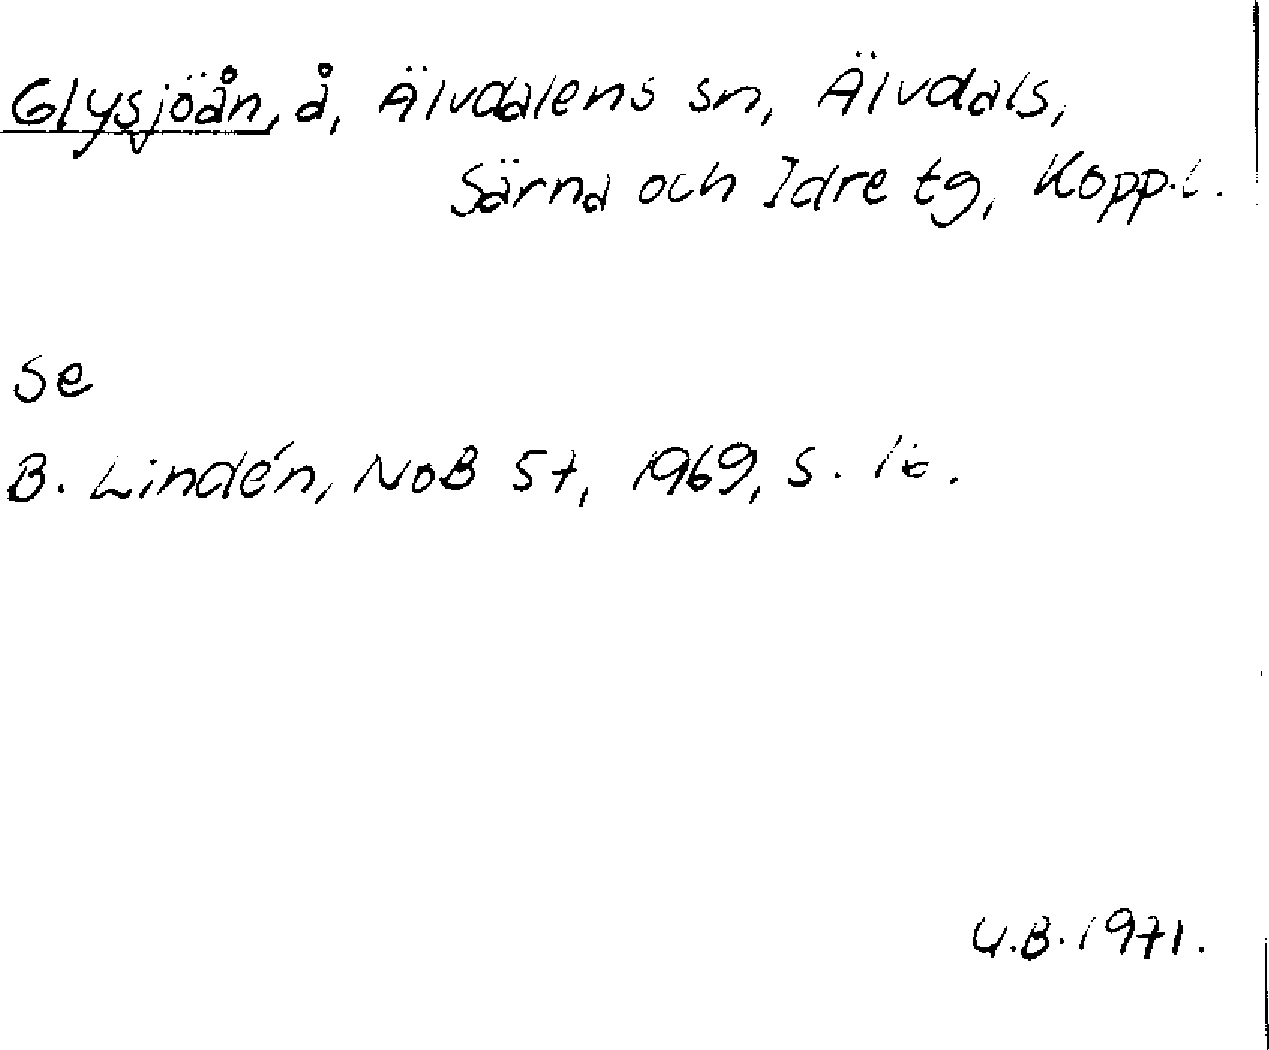 Glysjöån, å, Älvdalens sn, Älvdals,
Särna och Idre tg, Kopp.l.
se
B. Lindén, NoB 57, 1969, s.
U.B. 1971.